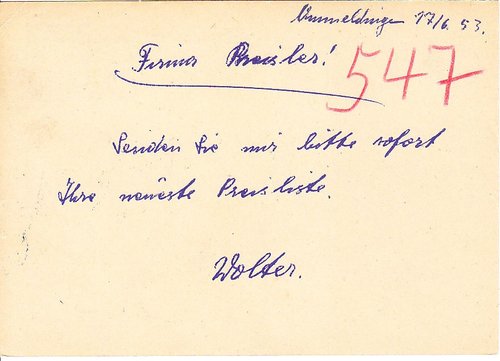 Ummeldinge 17/6. 53.
Firma Preisler!
547
Senden Sie mir bitte sofort
Ihre neueste Preisliste.
Wolter.